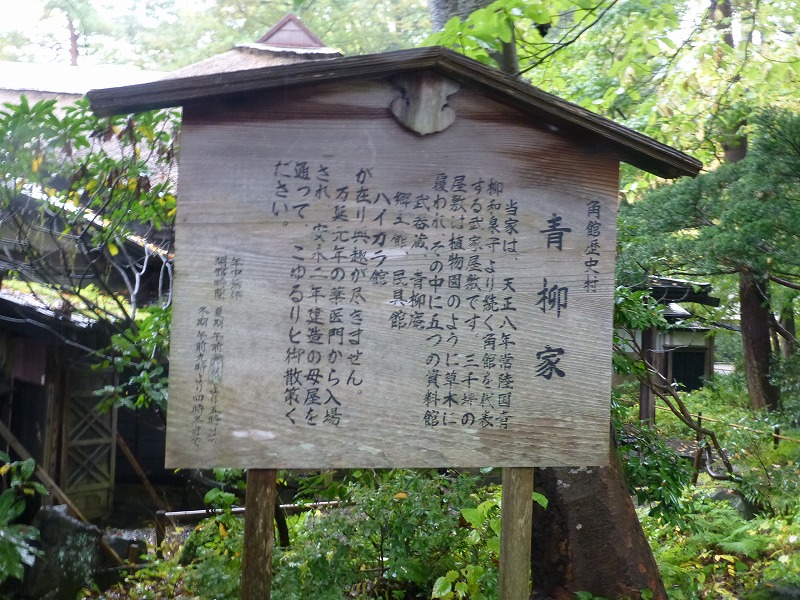 角館歴史村
青柳家
当家は、天正八年常陸国青
柳和泉子より続く角館を代表
する武家屋敷です。三千坪の
屋敷は植物園のように草木に
覆われ、その中に五つの資料館
武器蔵、青柳庵
郷土館、民具館
ハイカラ館
が在り興趣が尽きません。
万延元年の薬医門から入場
され、安永二年建造の母屋を
通って、こゆるりと御散策く
ださい。
年中無休
開館時間 夏期午前
冬期午前九時より四時半まで